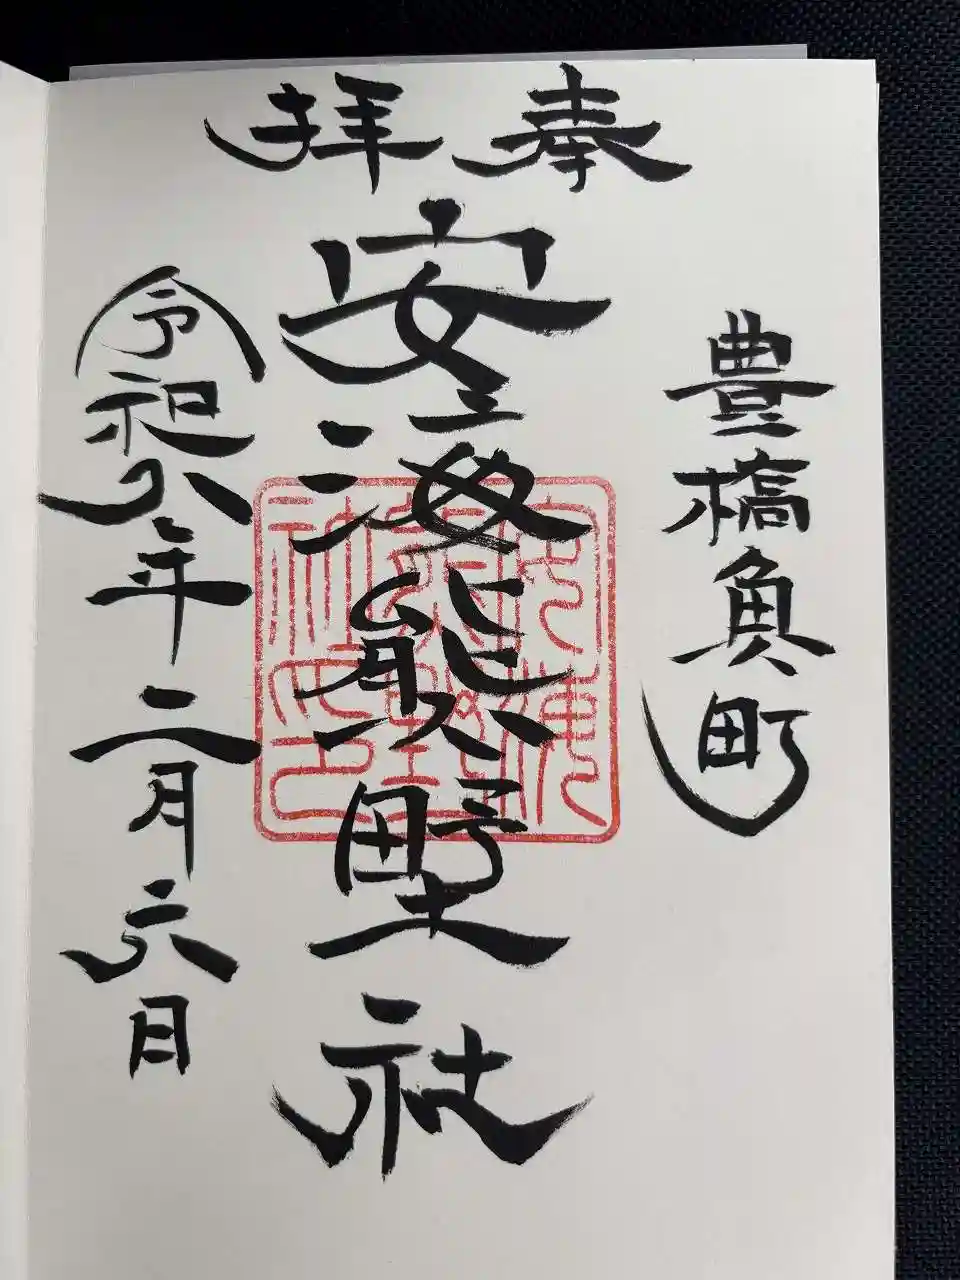 奉拝
豊橋魚町
安海熊野社
令和八年二月六日